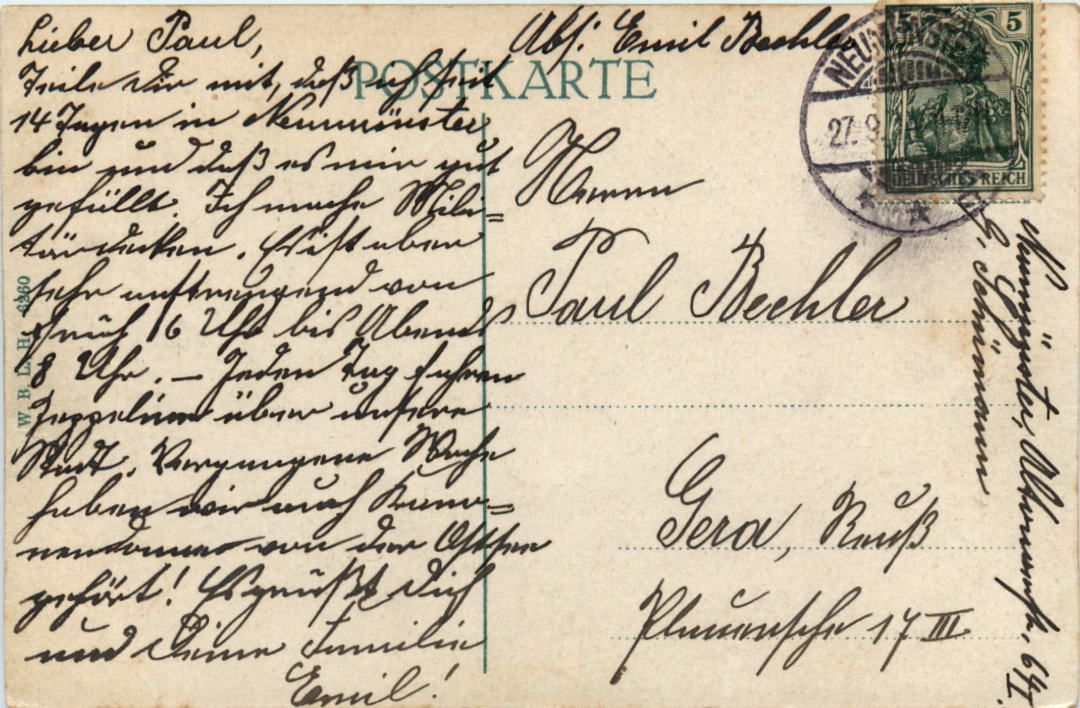 Lieber Paul,
Teile Dir mit, daß ich seit
14 Tagen in Neumünster
bin und daß es mir gut
gefällt. Ich mache Mili=
tärdecken. Es ist aber
sehr anstrengend von
früh 6 Uhr bis Abends
8 Uhr. — Jeden Tag fahren
Zeppeline über unsere
Stadt. Vergangene Woche
haben wir auch Kano=
nendonner von der Ostsee
gehört! Es grüßt Dich
und Deine Familie
Emil!
Abs: Emil Bechler
POSTKARTE
Herrn
Paul Bechler
Gera, Reuß
Plauensche 17 III
Neumünster, 64 I.
b. Schümann
NEUMÜNSTER
27. 9.
5 5
DEUTSCHES REICH
W. B. L. H. 6260